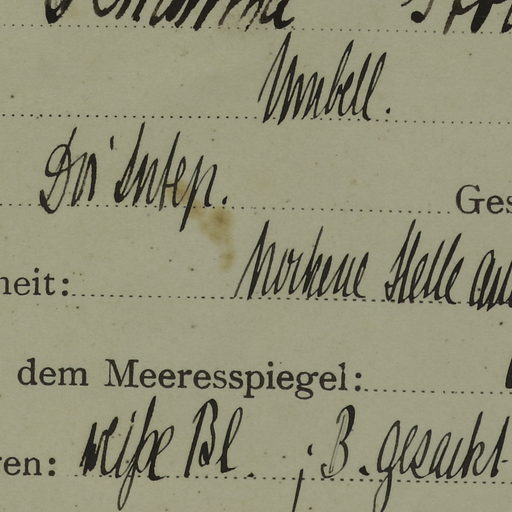 Umbell.
Doi Sutep. Ges
heit: trockene Stelle au
dem Meeresspiegel:
en: weiße Bl. ; B. gesackt